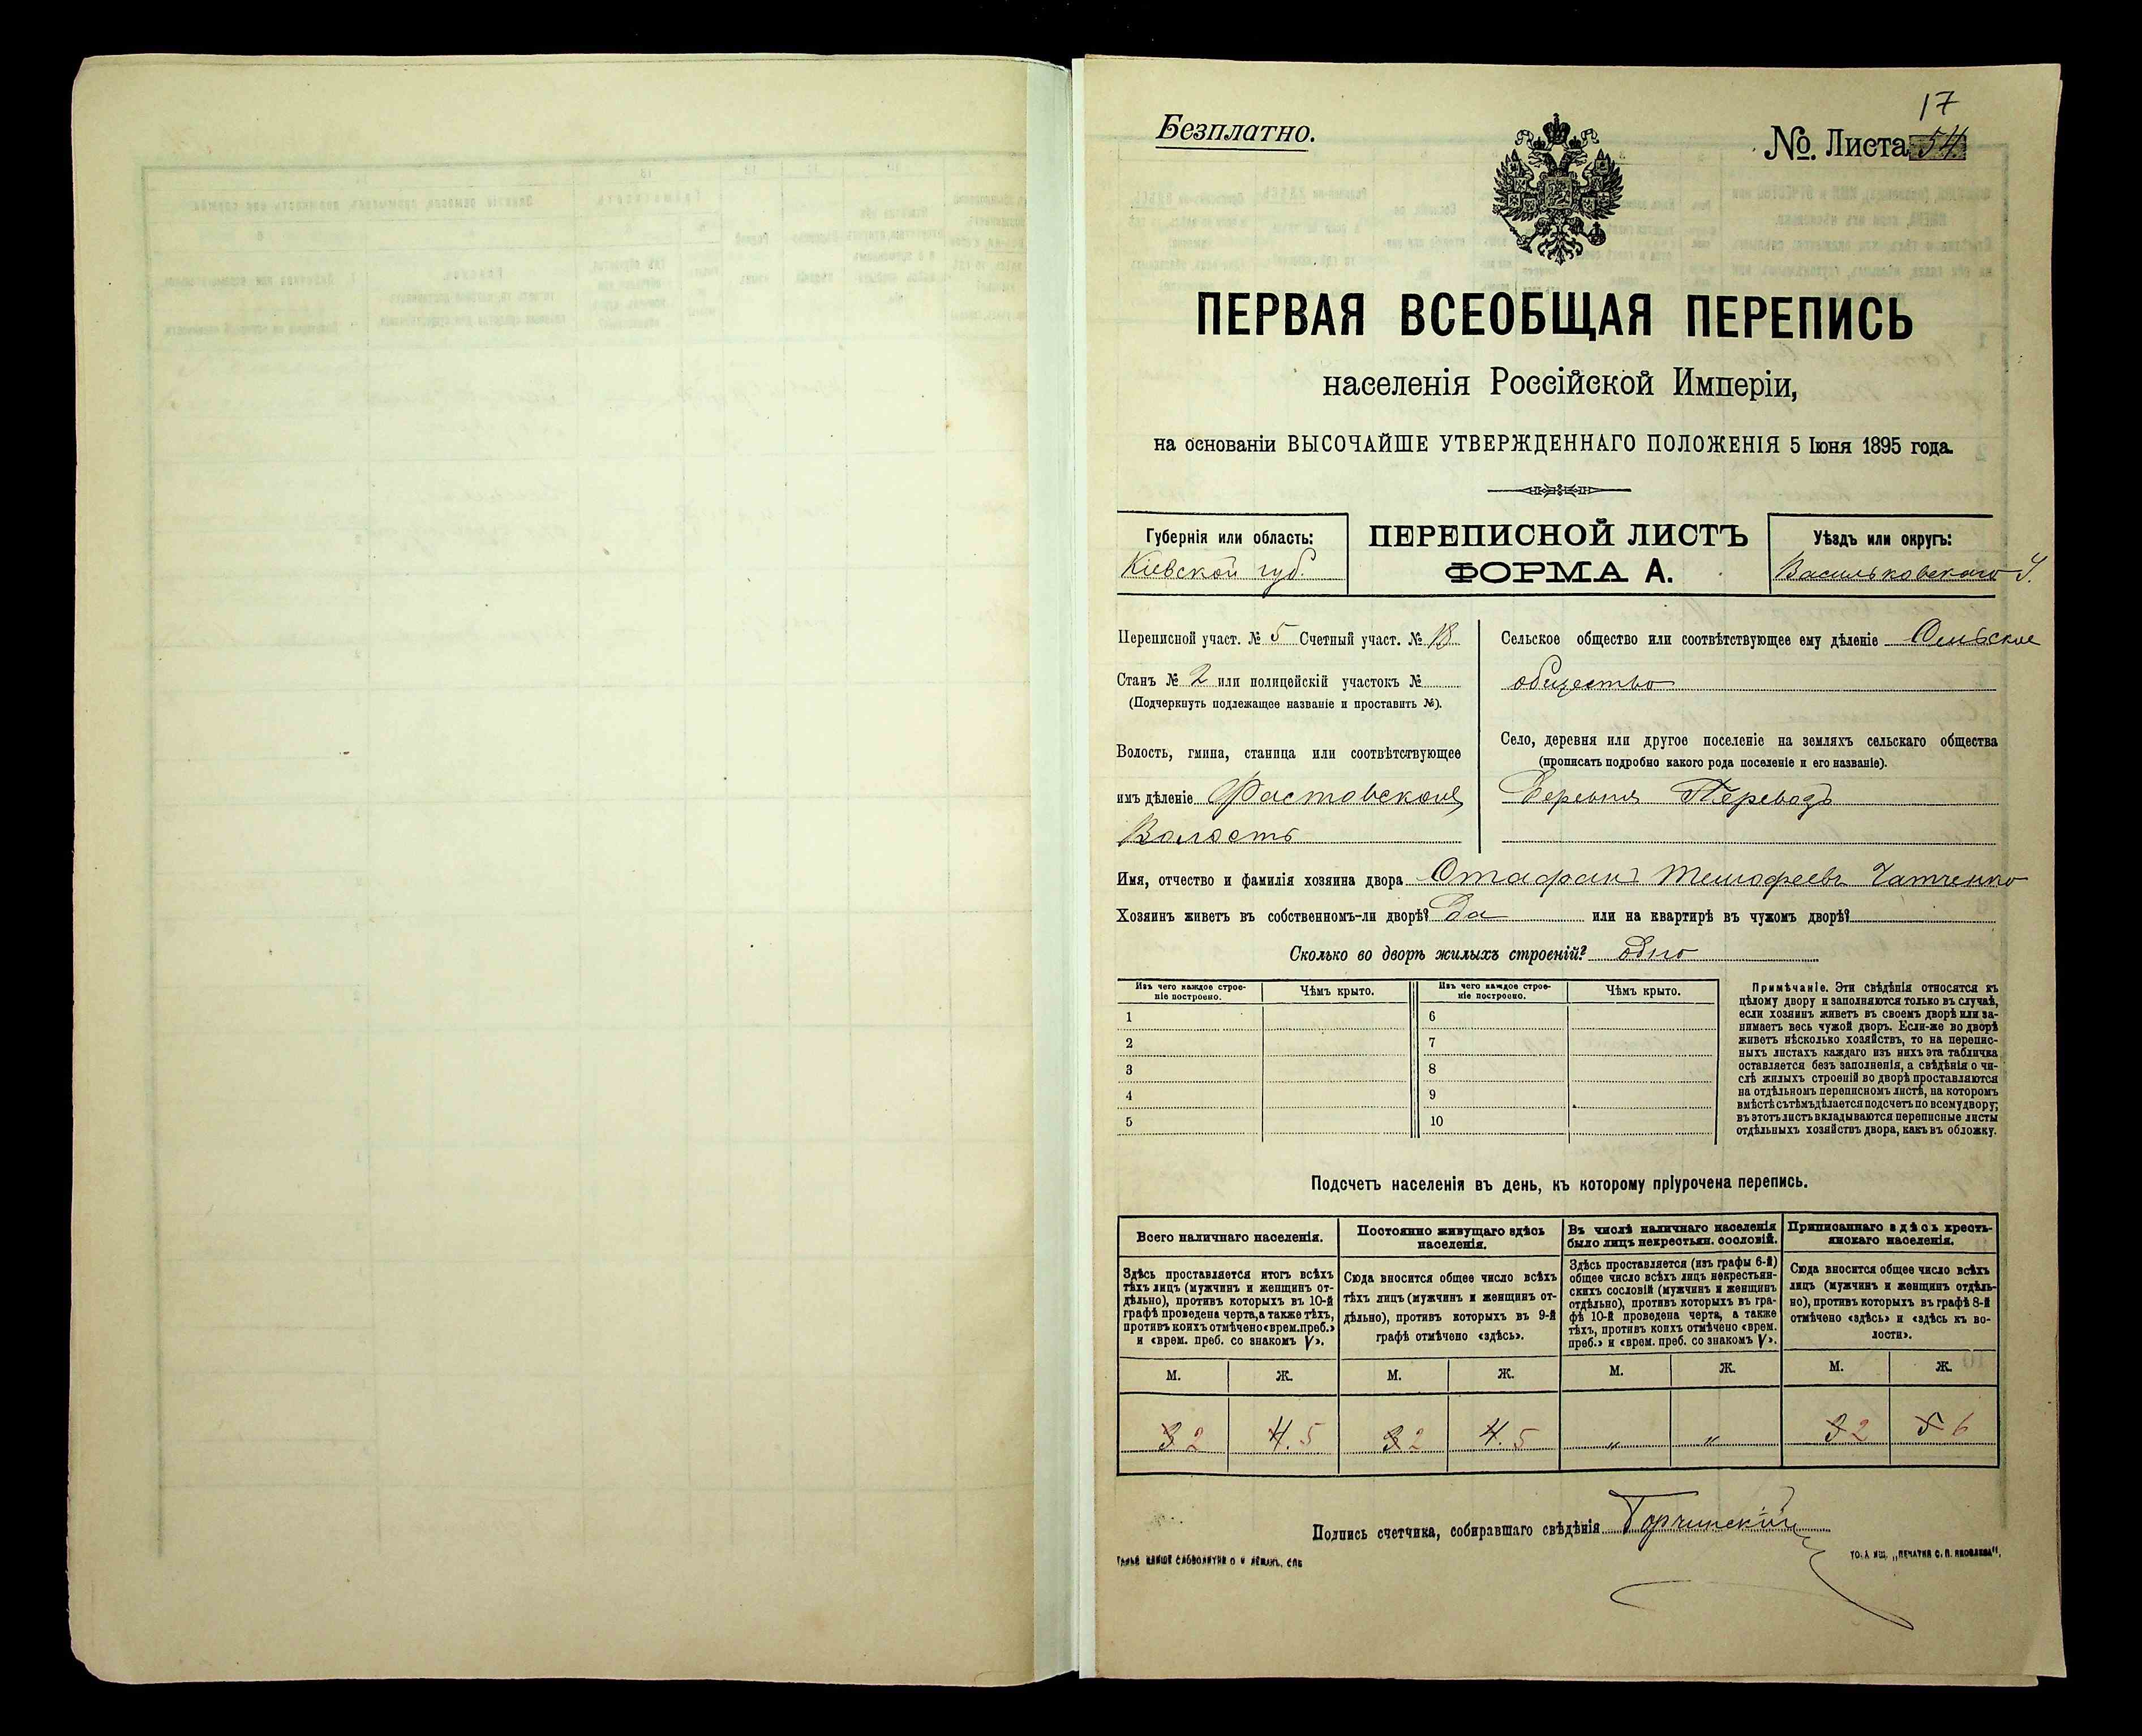 17
Безплатно.
№ Листа 54
ПЕРВАЯ ВСЕОБЩАЯ ПЕРЕПИСЬ
населенія Россійской Имперіи,
на основаніи ВЫСОЧАЙШЕ УТВЕРЖДЕННАГО ПОЛОЖЕНІЯ 5 Іюня 1895 года.
Губернія или область:
Кіевской губ.
ПЕРЕПИСНОЙ ЛИСТЪ
ФОРМА А.
Уѣздъ или округъ:
Васильковскаго У.
Переписной участ. № 5 Счетный участ. № 18
Станъ № 2 или полицейскій участокъ №
(Подчеркнуть подлежащее названіе и проставить №).
Волость, гмина, станица или соотвѣтствующее
имъ дѣленіе Фастовская
Волость
Сельское общество или соотвѣтствующее ему дѣленіе
общество
Село, деревня или другое поселеніе на земляхъ сельскаго общества
(прописать подробно какого рода поселеніе и его названіе).
Деревня Переводъ
Имя, отчество и фамилія хозяина двора
Хозяинъ живетъ въ собственномъ-ли дворѣ? Да или на квартирѣ въ чужомъ дворѣ?
Сколько во дворѣ жилыхъ строеній? одно
Изъ чего каждое строе-
ніе построено.
Чѣмъ крыто.
Изъ чего каждое строе-
ніе построено.
Чѣмъ крыто.
1 6
2 7
3 8
4 9
5 10
Примѣчаніе. Эти свѣдѣнія относятся къ
цѣлому двору и заполняются только въ случаѣ,
если хозяинъ живетъ въ своемъ дворѣ или за-
нимаетъ весь чужой дворъ. Если-же во дворѣ
живетъ нѣсколько хозяйствъ, то на перепис-
ныхъ листахъ каждаго изъ нихъ эта табличка
оставляется безъ заполненія, а свѣдѣнія о чи-
слѣ жилыхъ строеній во дворѣ проставляются
на отдѣльномъ переписномъ листѣ, на которомъ
вмѣстѣ съ тѣмъ дѣлается подсчетъ по всему двору;
въ этотъ листъ вкладываются переписные листы
отдѣльныхъ хозяйствъ двора, какъ въ обложку.
Подсчетъ населенія въ день, къ которому пріурочена перепись.
Всего наличнаго населенія.
Здѣсь проставляется итогъ всѣхъ
тѣхъ лицъ (мужчинъ и женщинъ от-
дѣльно), противъ которыхъ въ 10-й
графѣ проведена черта, а также тѣхъ,
противъ коихъ отмѣчено «врем. преб.»
и «врем. преб. со знакомъ V».
Постоянно живущаго здѣсь
населенія.
Сюда вносится общее число всѣхъ
тѣхъ лицъ (мужчинъ и женщинъ от-
дѣльно), противъ которыхъ въ 9-й
графѣ отмѣчено «здѣсь».
Въ числѣ наличнаго населенія
было лицъ некрестьян. сословій.
Здѣсь проставляется (изъ графы 6-й)
общее число всѣхъ лицъ некрестьян-
скихъ сословій (мужчинъ и женщинъ
отдѣльно), противъ которыхъ въ гра-
фѣ 10-й проведена черта, а также
тѣхъ, противъ коихъ отмѣчено «врем.
преб.» и «врем. преб. со знакомъ V».
Приписаннаго здѣсь кресть-
янскаго населенія.
Сюда вносится общее число всѣхъ
лицъ (мужчинъ и женщинъ отдѣль-
но), противъ которыхъ въ графѣ 8-й
отмѣчено «здѣсь» и «здѣсь къ во-
лости».
М. Ж. М. Ж. М. Ж. М. Ж.
3 2 4. 5 3 2 4. 5 " " 3 2 5 6
Подпись счетчика, собиравшаго свѣдѣнія